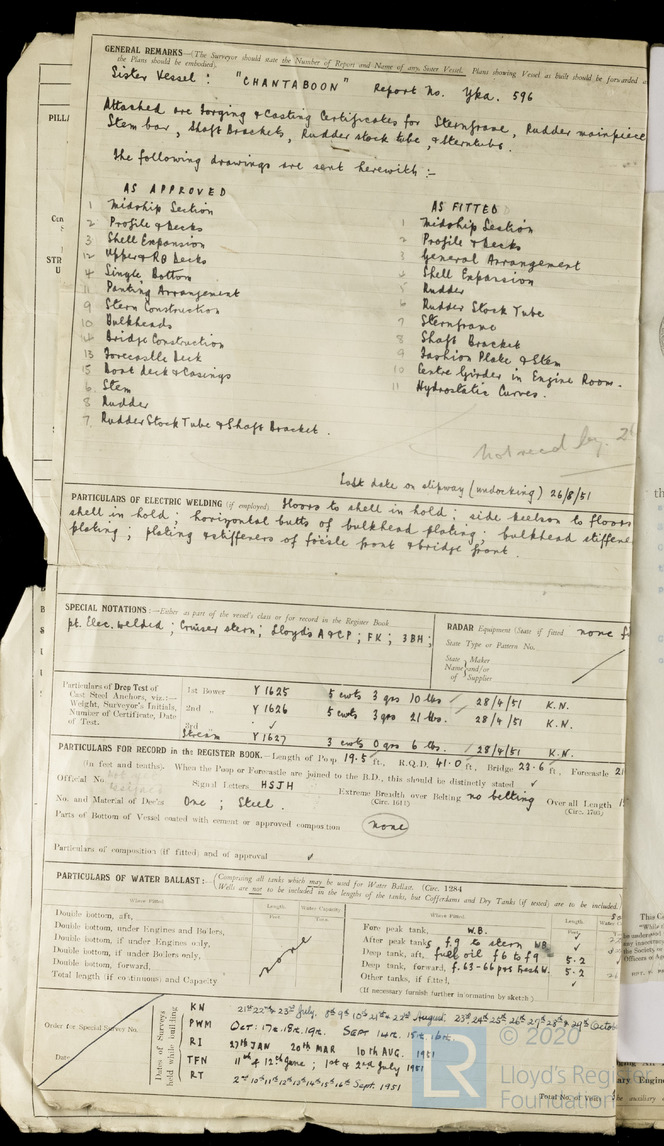 GENERAL REMARKS—(The Surveyor should state the Number of Report and Name of any Sister Vessel. Plans showing Vessel as built should be forwarded
the Plans should be embodied).
Sister Vessel : "CHANTABOON" Report No. Yka. 596
Attached are Forging & Casting Certificates for Sternframe, Rudder mainpiece
Stem bar, Shaft Brackets, Rudder stock tube, & Sterntube.
The following drawings are sent herewith :-
AS APPROVED
1 Midship Section
2 Profile & Decks
3 Shell Expansion
12 Upper & RQ Decks
4 Single Bottom
11 Panting Arrangement
9 Stern Construction
10 Bulkheads
14 Bridge Construction
13 Forecastle Deck
15 Boat deck & Casings
6 Stem
8 Rudder
7 Rudder Stock Tube & Shaft Bracket.
AS FITTED
1 Midship Section
2 Profile & Decks
3 General Arrangement
4 Shell Expansion
5 Rudder
6 Rudder Stock Tube
7 Sternframe
8 Shaft Bracket
9 Fashion Plate & Stem
10 Centre Girder in Engine Room.
11 Hydrostatic Curves.
Not recd by. 2
Last date on slipway (undocking) 26/8/51
PARTICULARS OF ELECTRIC WELDING (if employed) Floors to shell in hold ; side keelson to floors
shell in hold ; horizontal butts of bulkhead plating ; bulkhead stiffene
plating ; plating & stiffeners of fo'csle front & bridge front.
SPECIAL NOTATIONS :—Either as part of the vessel's class or for record in the Register Book
pt. Elec. welded ; Cruiser stern ; Lloyds A & CP ; FK ; 3BH ;
RADAR Equipment (State if fitted none f
State Type or Pattern No.
State Maker
Name and/or
of Supplier
Particulars of Drop Test of
Cast Steel Anchors, viz.:—
Weight, Surveyor's Initials,
Number of Certificate, Date
of Test.
1st Bower Y 1625 5 cwts 3 qrs 10 lbs 28/4/51 K.N.
2nd " Y 1626 5 cwts 3 qrs 21 lbs. 28/4/51 K.N.
3rd
Stream Y 1627 3 cwts 0 qrs 6 lbs. 28/4/51 K.N.
PARTICULARS FOR RECORD in the REGISTER BOOK.—Length of Poop 19.5 ft., R.Q.D. 41.0 ft., Bridge 23.6 ft., Forecastle 21
(in feet and tenths). When the Poop or Forecastle are joined to the B.D., this should be distinctly stated ✓
Official No. Signal Letters HSJH Extreme Breadth over Belting no belting Over all Length
(Circ. 1611) (Circ. 1703)
No. and Material of Decks One ; Steel.
Parts of Bottom of Vessel coated with cement or approved composition none
Particulars of composition (if fitted) and of approval ✓
PARTICULARS OF WATER BALLAST : (Comprising all tanks which may be used for Water Ballast. (Circ. 1284
Wells are not to be included in the lengths of the tanks, but Cofferdams and Dry Tanks (if tested) are to be included.
Where Fitted. Length. Water Capacity.
Feet Tons.
Double bottom, aft,
Double bottom, under Engines and Boilers,
Double bottom, if under Engines only,
Double bottom, if under Boilers only,
Double bottom, forward,
Total length (if continuous) and Capacity
none
Where Fitted. Length. Water
Fore peak tank, W.B.
After peak tank, f.9 to stern WB
Deep tank, aft, fuel oil f6 to f9 5.2
Deep tank, forward, f.63-66 p&s Fresh W. 5.2
Other tanks, if fitted, ✓
(If necessary furnish further information by sketch)
Order for Special Survey No.
Date
Dates of Surveys
held while building
KN 21st 22nd & 23rd July. 8th 9th 10th 21st & 22nd August. 23rd 24th 25th 26th 27th 28th & 29th Octobe
PWM Oct: 17th. 18th. 19th. SEPT 14th. 15th. 16th.
RI 27th JAN 20th MAR 10th AUG. 1951
TFN 11th & 12th June ; 1st & 2nd July 1951
RT 2nd 10th 11th 12th 13th 14th 15th 16th Sept. 1951
Total No. of Visits
© 2020
LR
Lloyd's Register
Foundation
PILLA
STR